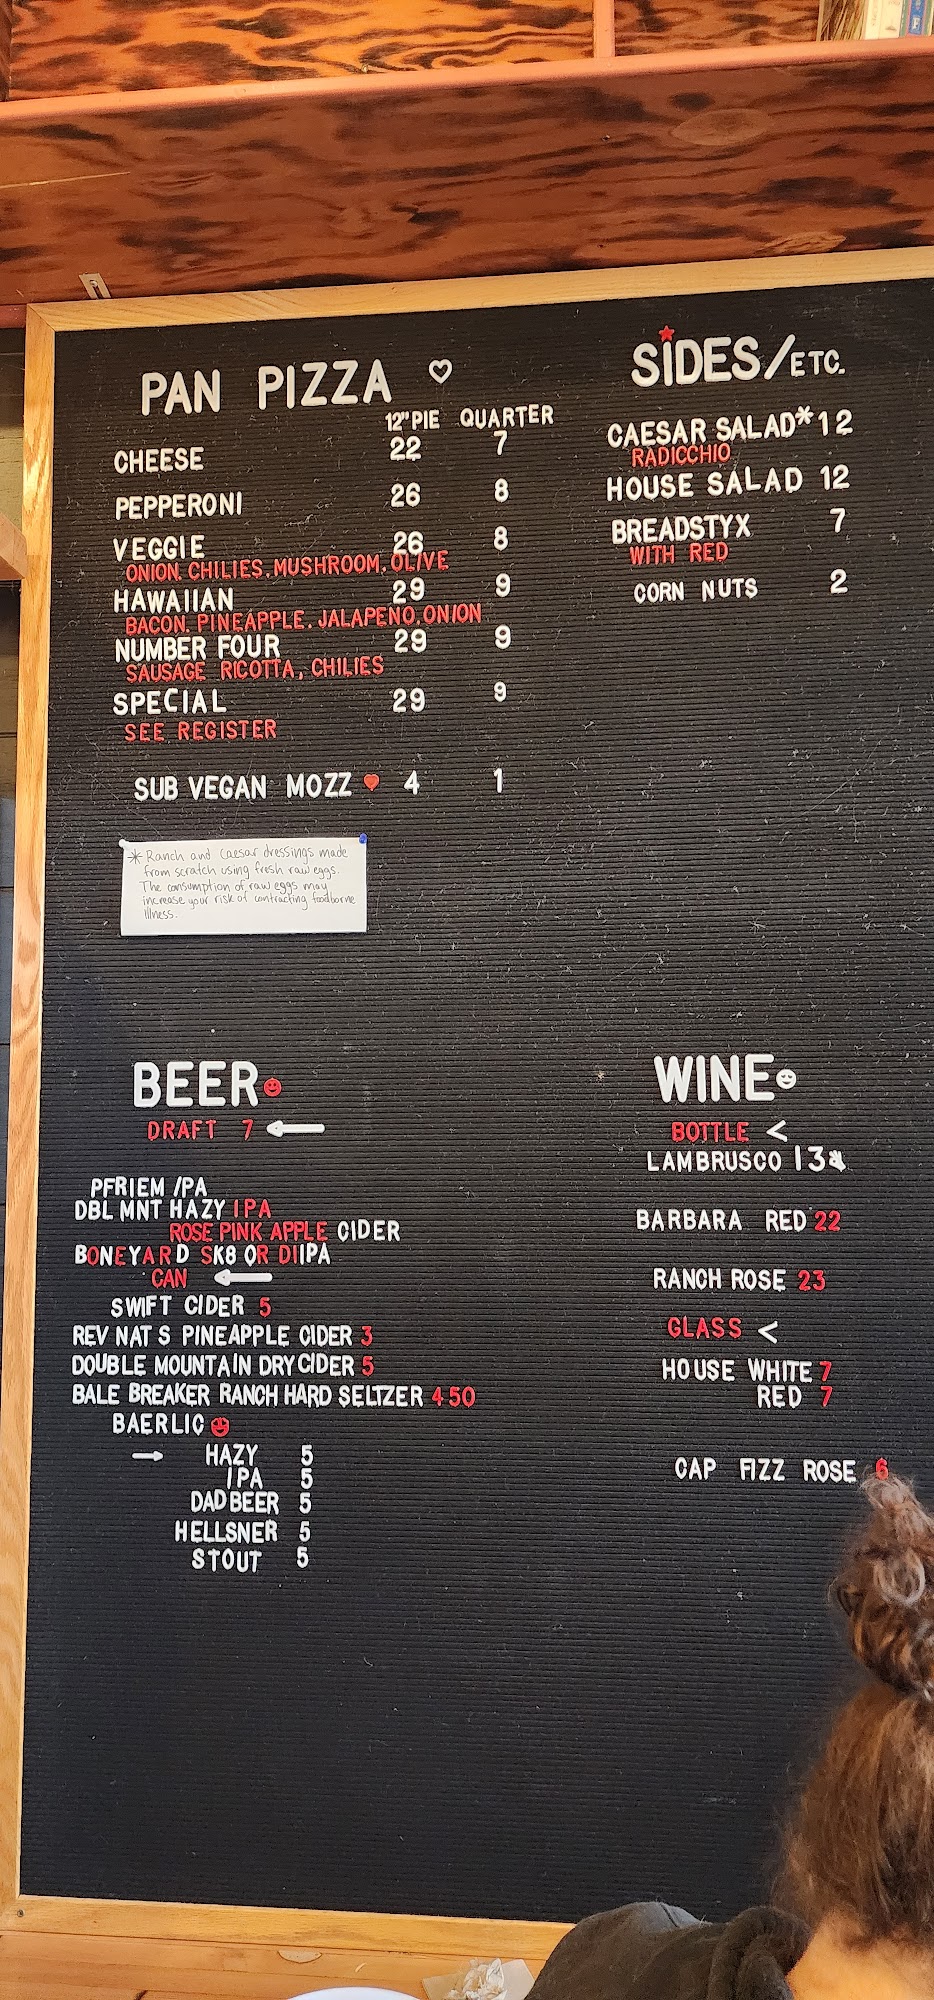 PAN PIZZA
12" PIE QUARTER
CHEESE 22 7
PEPPERONI 26 8
VEGGIE 26 8
ONION. CHILIES. MUSHROOM. OLIVE
HAWAIIAN 29 9
BACON. PINEAPPLE. JALAPENO. ONION
NUMBER FOUR 29 9
SAUSAGE RICOTTA, CHILIES
SPECIAL 29 9
SEE REGISTER
SUB VEGAN MOZZ 4 1
* Ranch and Caesar dressings made
from scratch using fresh raw eggs.
The consumption of raw eggs may
increase your risk of contracting foodborne
illness.
SIDES/ETC.
CAESAR SALAD* 12
RADICCHIO
HOUSE SALAD 12
BREADSTYX 7
WITH RED
CORN NUTS 2
BEER
DRAFT 7
PFRIEM /PA
DBL MNT HAZY IPA
ROSE PINK APPLE CIDER
BONEYARD SK8 OR DIIPA
CAN
SWIFT CIDER 5
REV NAT S PINEAPPLE CIDER 3
DOUBLE MOUNTAIN DRY CIDER 5
BALE BREAKER RANCH HARD SELTZER 4 50
BAERLIC
HAZY 5
IPA 5
DAD BEER 5
HELLSNER 5
STOUT 5
WINE
BOTTLE <
LAMBRUSCO 13
BARBARA RED 22
RANCH ROSE 23
GLASS <
HOUSE WHITE 7
RED 7
CAP FIZZ ROSE 6